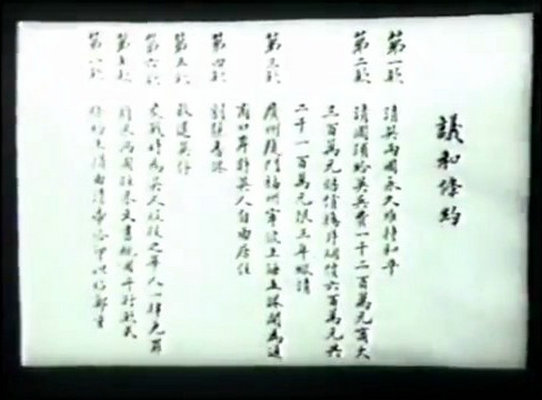 議和條約
第一款 清英兩國永久維持和平
第二款 清國須給英兵費一千二百萬元商欠
三百萬元賠償鴉片烟價六百萬元共
二千一百萬元限三年繳清
第三款 廣州廈門福州寧波上海五港開為通
商口岸許英人自由居住
第四款 割讓香港
第五款 放還英俘
第六款 交戰時為英人服役之華人一律免罪
第七款 將來兩國往來文書概用平行款式
第八款 條約上須由清帝鈐印以昭鄭重